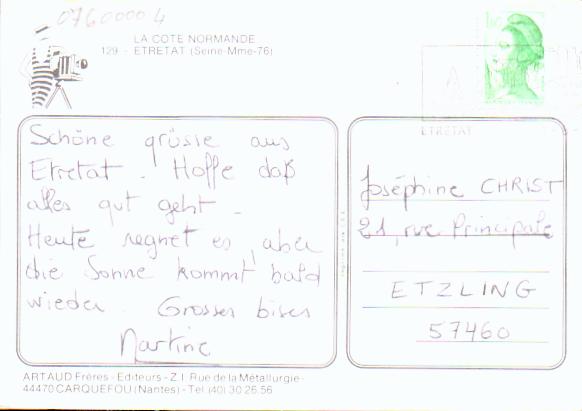 0760000 4
LA COTE NORMANDE
129 - ETRETAT (Seine-Mme-76)
ETRETAT
Schöne grüsse aus
Etretat. Hoffe daß
alles gut geht.
Heute regnet es, aber
die Sonne kommt bald
wieder. Grosses bises
Martine
Joséphine CHRIST
21, rue Principale
ETZLING
57460
ARTAUD Frères - Editeurs - Z.I. Rue de la Métallurgie -
44470 CARQUEFOU (Nantes) - Tel (40) 30 26 56